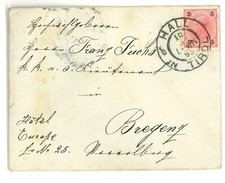 Hochwohlgeboren
Herrn Franz Fuchs
k.u.k. Lieutenant
in
Hôtel
Europe
Z. No 25.
Bregenz
Vorarlberg
HALL
TIROL
5
5